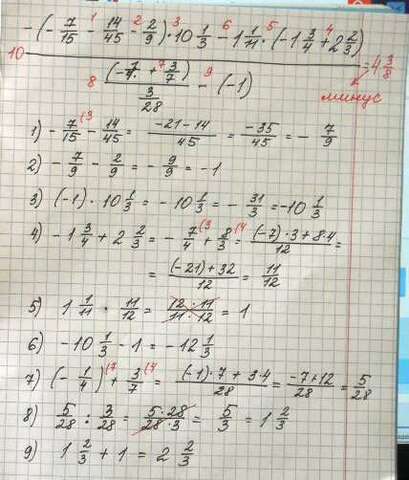 -(-7/15 - 14/45 - 2/9) · 10 1/3 - 1 1/11 · (-1 3/4 + 2 2/3)
1 2 3 6 5 4
10
= 4 3/8
(-1/4 + 3/7)
7
8 3/28 9 - (-1)
минус
1) -7/15 (3 - 14/45 = (-21-14)/45 = -35/45 = -7/9
2) -7/9 - 2/9 = -9/9 = -1
3) (-1) · 10 1/3 = -10 1/3 = -31/3 = -10 1/3
4) -1 3/4 + 2 2/3 = -7/4 (3 + 8/3 (4 = ((-7)·3+8·4)/12 =
= ((-21)+32)/12 = 11/12
5) 1 1/11 · 11/12 = (12·11)/(11·12) = 1
6) -10 1/3 - 1 = -12 1/3
7) (-1/4) (7 + 3/7 (4 = ((-1)·7+3·4)/28 = (-7+12)/28 = 5/28
8) 5/28 : 3/28 = (5·28)/(28·3) = 5/3 = 1 2/3
9) 1 2/3 + 1 = 2 2/3